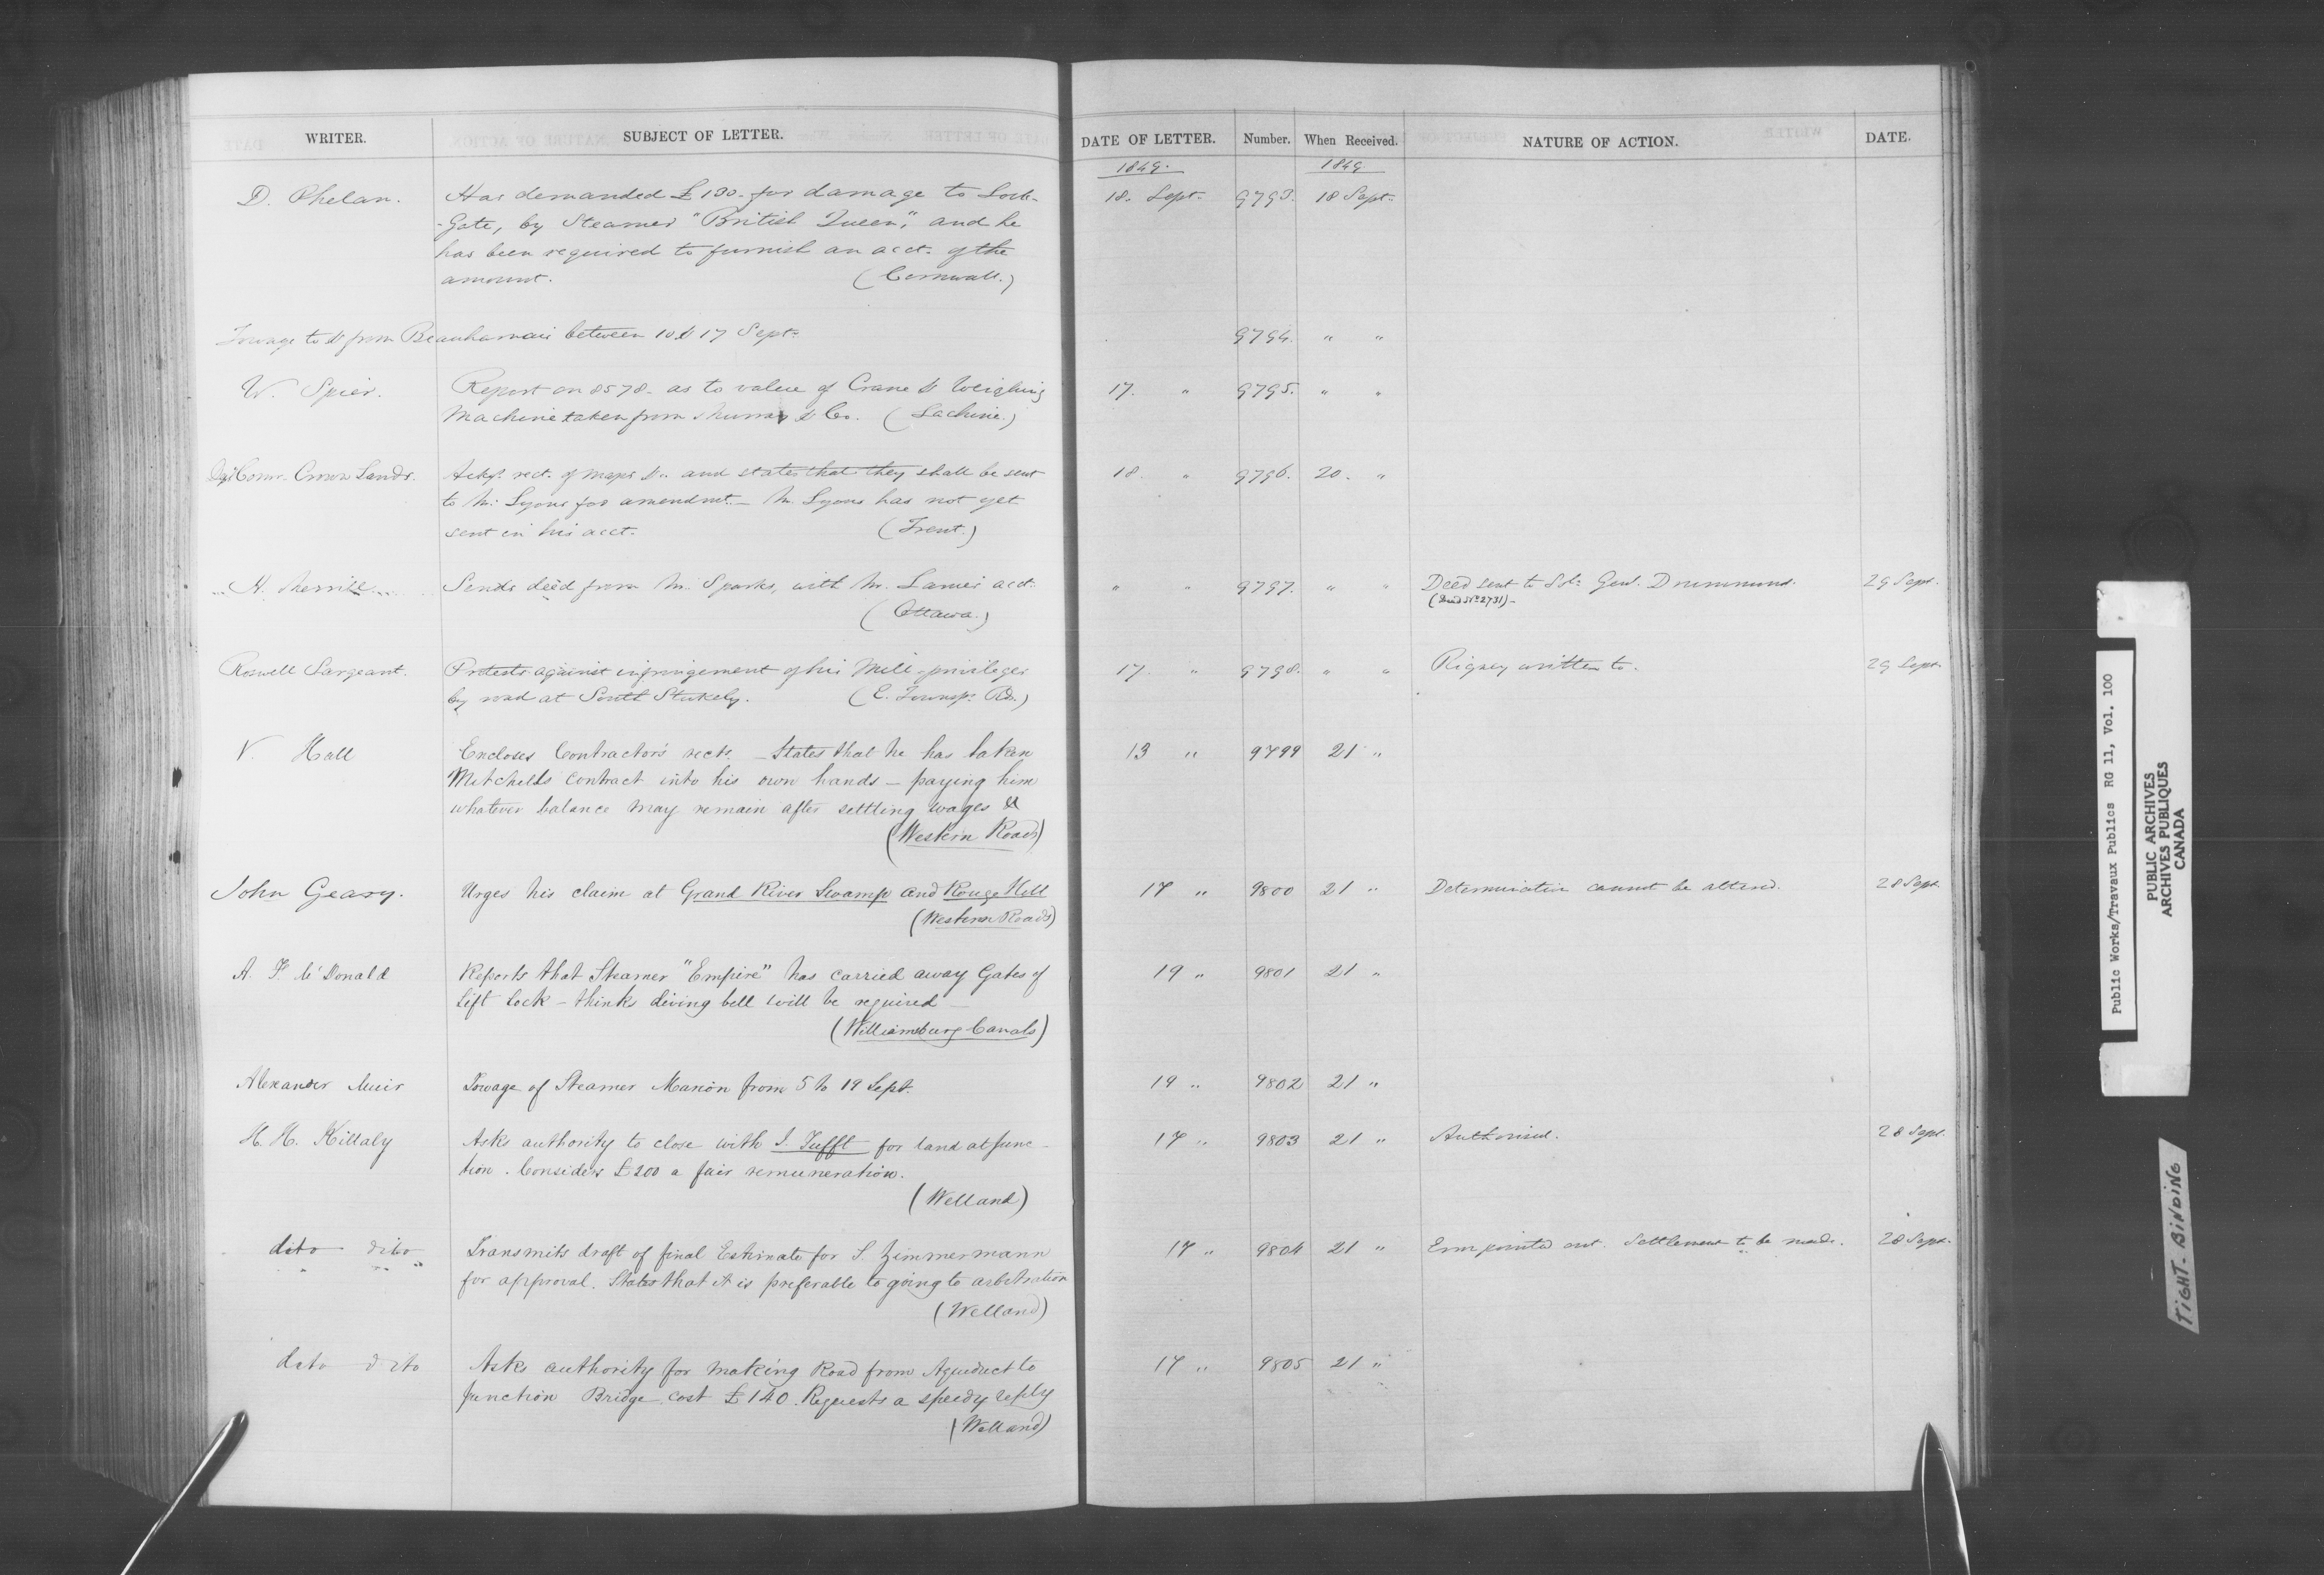 WRITER. SUBJECT OF LETTER. DATE OF LETTER. Number. When Received. NATURE OF ACTION. DATE.
1849. 1849.
D. Phelan. Has demanded £100. for damage to Lock- 18. Sept. 9793. 18 Sept.
-Gate, by Steamer "British Queen", and he
has been required to furnish an acct. of the
amount. (Cornwall.)
Towage to & from Beauharnais between 10 & 17 Sept. 9794. " "
W. Spier. Report on 8578. as to value of Crane & Weighing 17. " 9795. " "
Machine taken from Murray & Co. (Lachine.)
Comr. Crown Lands. Ackgs. rect. of maps &c. and states that they shall be sent 18. " 9796. 20. "
to Mr. Lyons for amendmt. — Mr. Lyons has not yet
sent in his acct. (Trent.)
H. Merrill Sends deed from Mr. Sparks, with Mr. acct. " " 9797. " " Deed sent to Solr. Genl. Drummond. 29 Sept.
(Ottawa.) (Deed No. 2731) -
Roswell Sargeant. Protests against infringement of his Mill-privileges 17. " 9798. " " Rigney written to. 29 Sept.
by road at South Stukely. (E. Townsp. Rds.)
V. Hall Encloses Contractor's rects. — States that he has taken 13 " 9799 21 "
Mitchells Contract into his own hands — paying him
whatever balance may remain after settling wages &
(Western Roads)
John Geary. Urges his claim at Grand River Swamp and Rouge Hill 17 " 9800 21 " Determination cannot be altered. 28 Sept.
(Western Roads)
A. F McDonald Reports that Steamer "Empire" has carried away Gates of 19 " 9801 21 "
Lift Lock — thinks diving bell will be required —
(Williamsburg Canals)
Alexander Muir Towage of Steamer Marion from 5 to 19 Sept. 19 " 9802 21 "
H. H. Killaly Asks authority to close with J. Tufft for land at func- 17 " 9803 21 " Authorised. 28 Sept.
tion. Considers £200 a fair remuneration.
(Welland)
dito dito Transmits draft of final Estimate for S. Zimmermann 17 " 9804 21 " Error pointed out. Settlement to be made. 28 Sept.
for approval. States that it is preferable to going to arbitration
(Welland)
dito dito Asks authority for making Road from Aqueduct to 17 " 9805 21 "
Junction Bridge cost £140. Requests a speedy reply
(Welland)
Public Works/Travaux Publics RG 11, Vol. 100
PUBLIC ARCHIVES
ARCHIVES PUBLIQUES
CANADA
TIGHT. BINDING